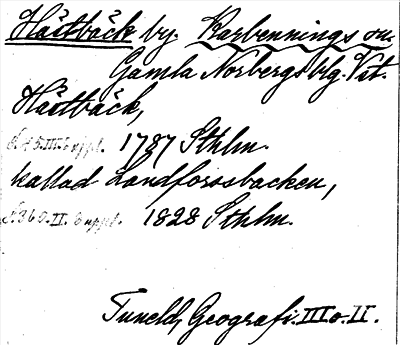 Hästbäck by. Karbennings sn.
Gamla Norbergs blg. Vst.
Hästbäck,
s. 45. III. uppl. 1787 Sthlm.
kallad Landforssbacken,
s. 360. II. uppl. 1828 Sthlm.
Tuneld, Geografi. III o. II.